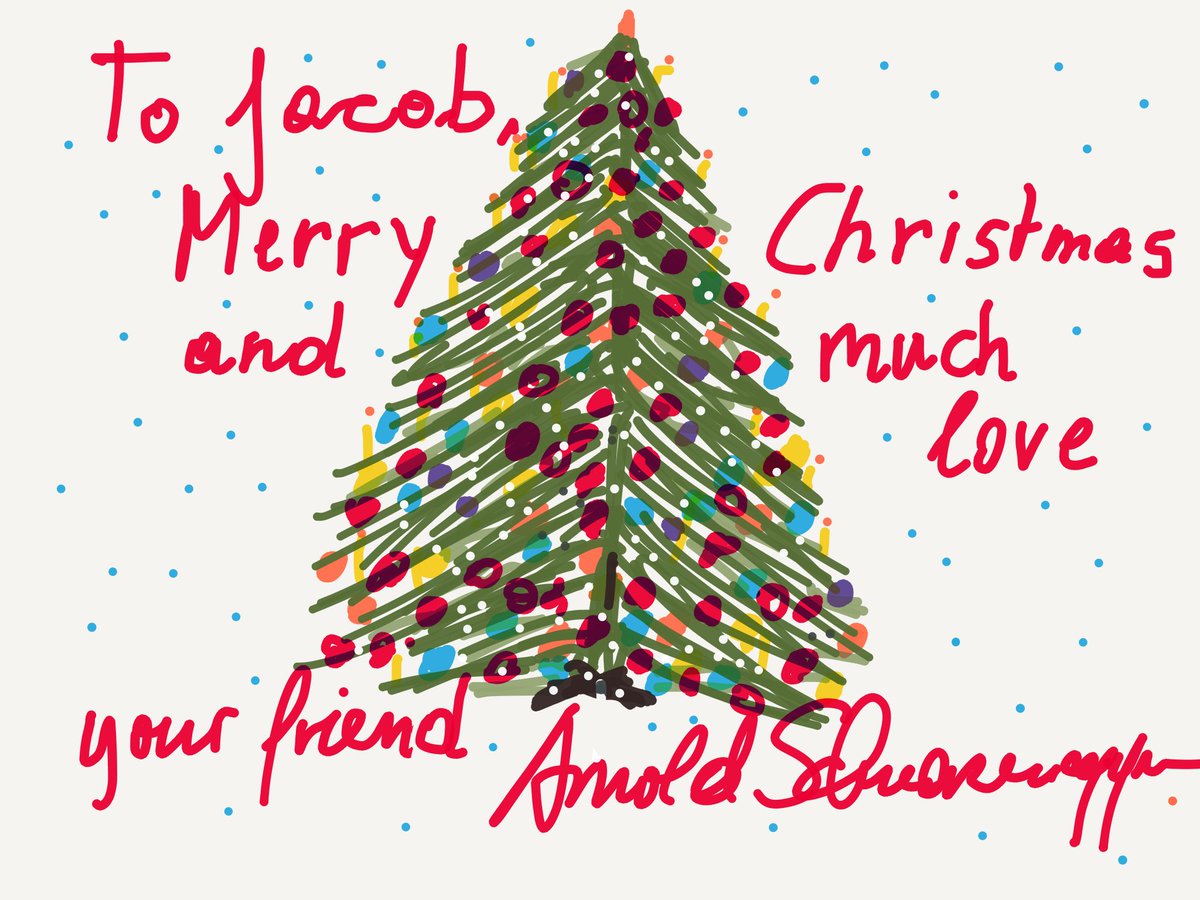 To Jacob,
Merry Christmas
and much
love
your friend Arnold Schwarzenegger